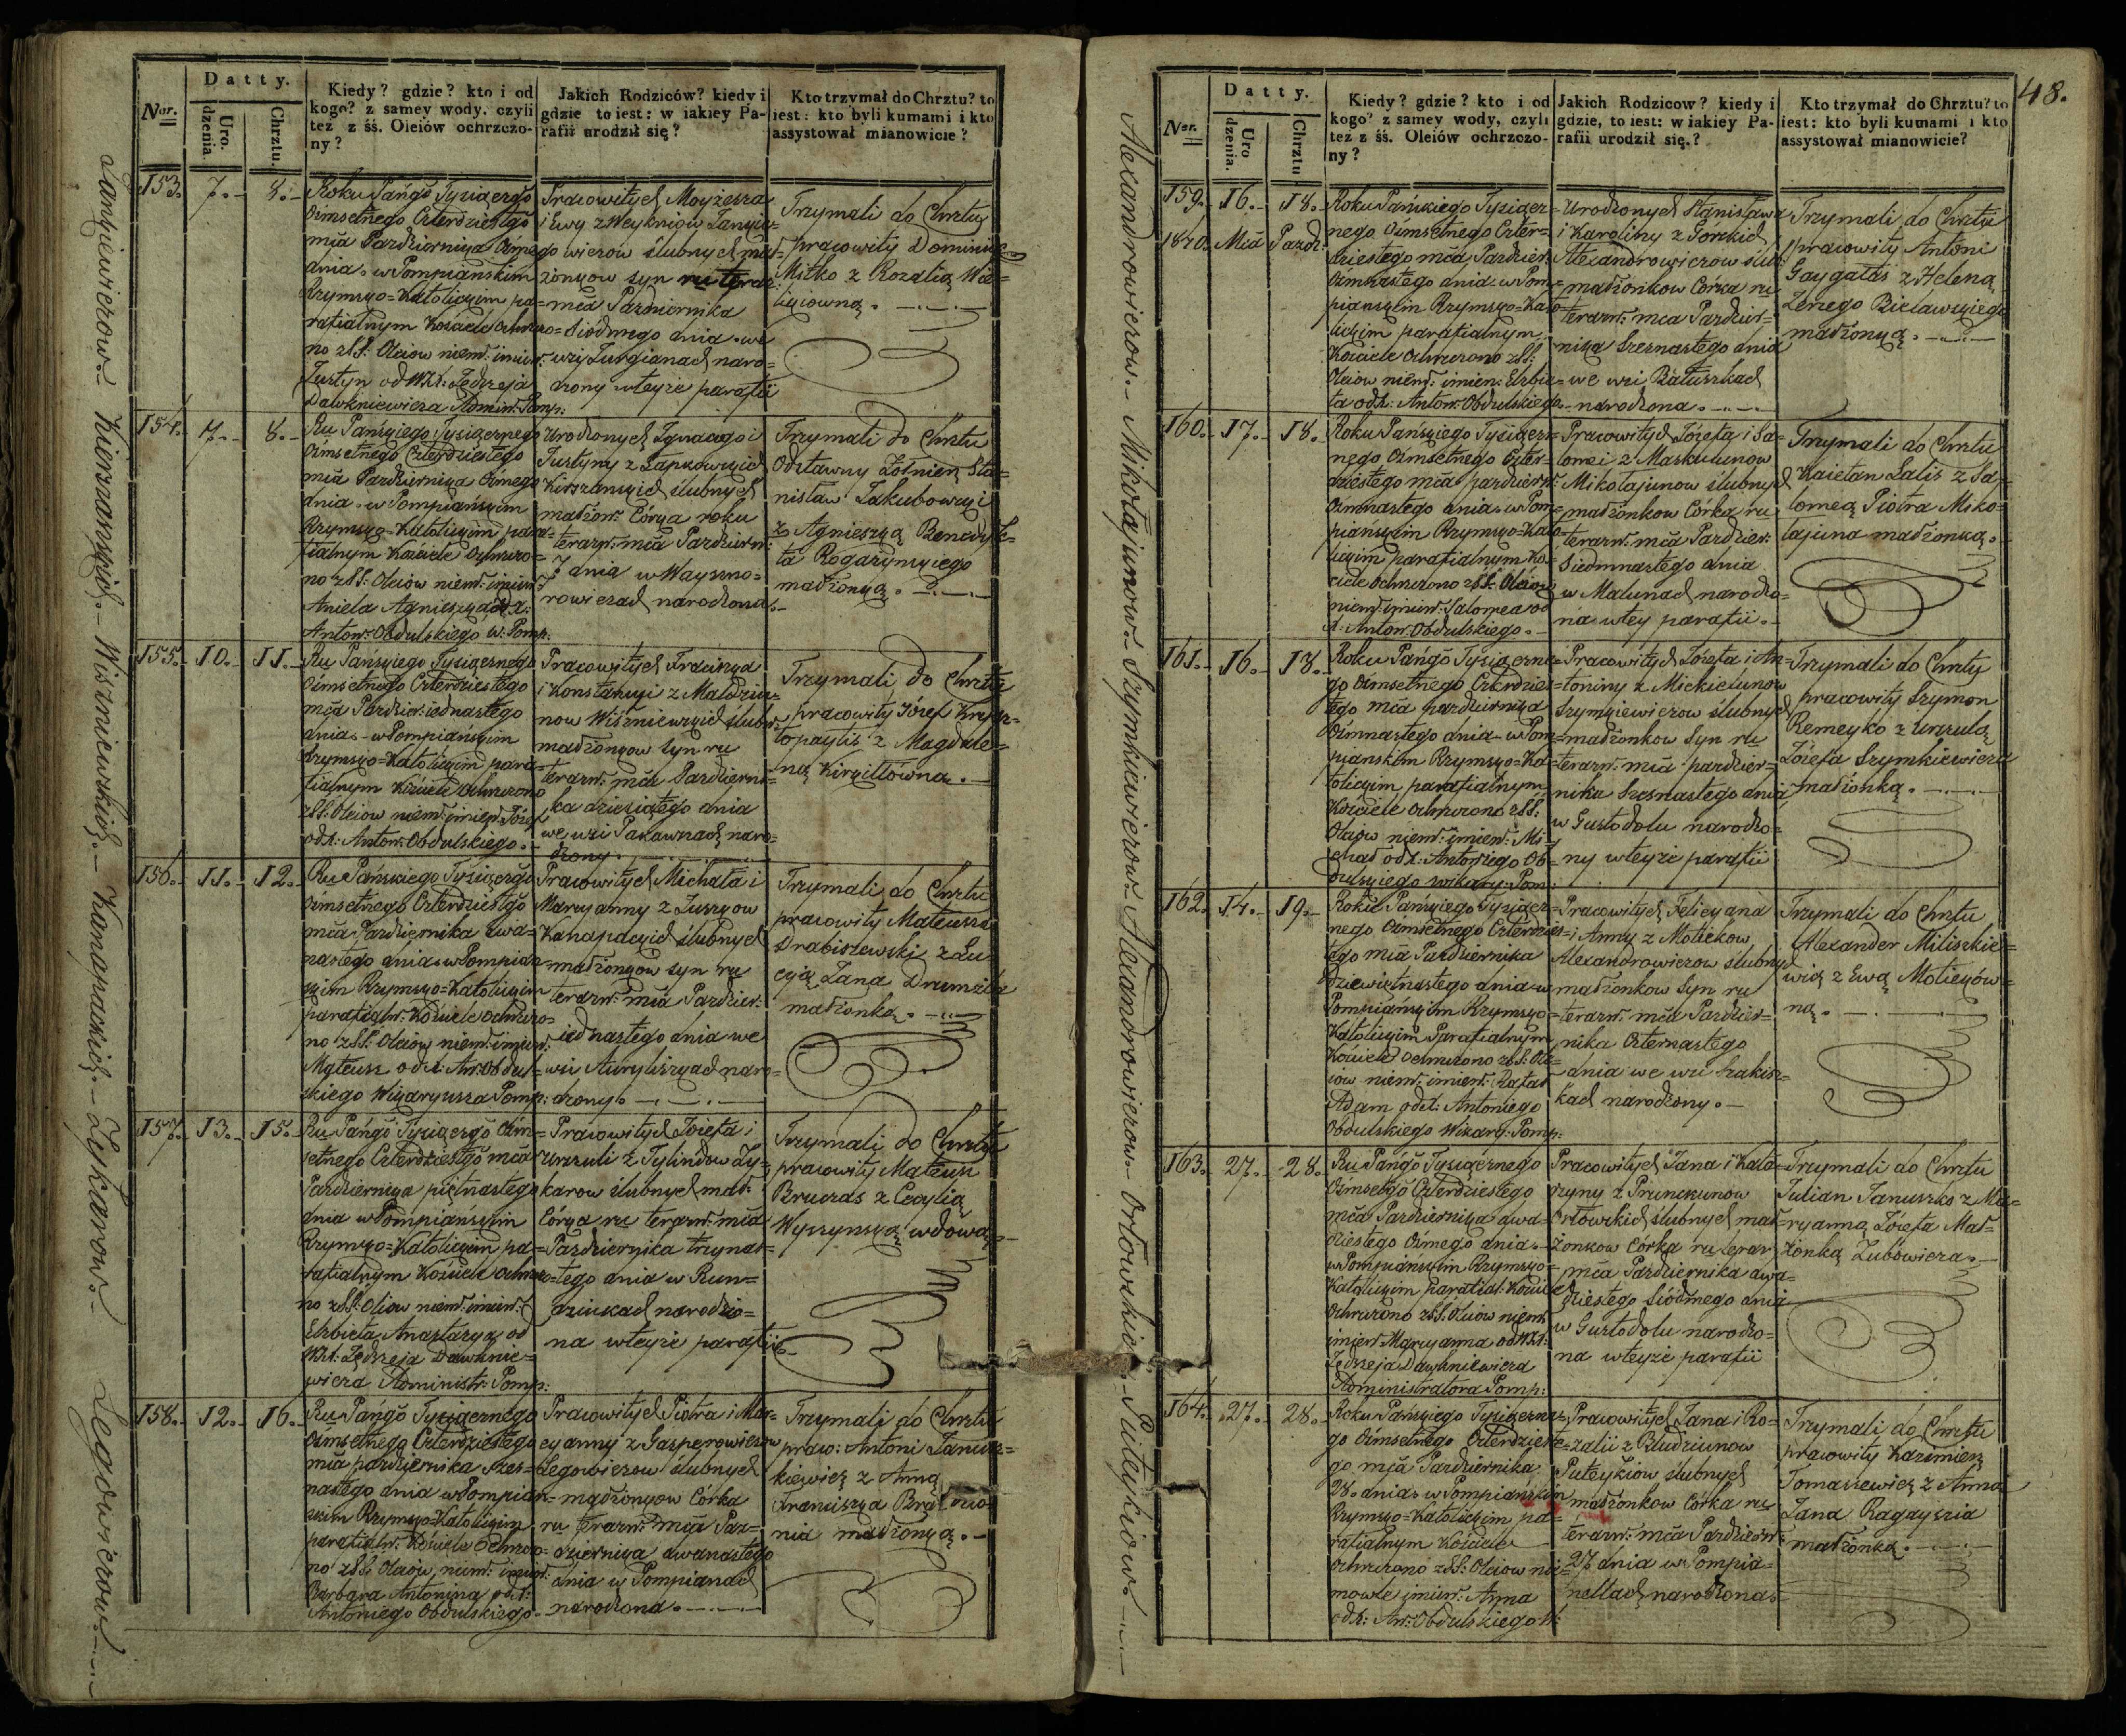 Datty.
Nor.
Uro.
dzenia
Chrztu.
Kiedy? gdzie? kto i od
kogo? z samey wody, czyli
tez z śś. Oleiów ochrzczo-
ny?
Jakich Rodziców? kiedy i
gdzie to iest: w iakiey Pa-
rafii urodził się?
Kto trzymał do Chrztu? to
iest: kto byli kumami i kto
assystował mianowicie?
153. 7. 8.
Roku Pańgo Tysiącgo
Ośmsetnego Czterdziestgo
mca Pazdziernika Osmego
dnia w Pompiańskim
Rzymsko=Katolickim pa=
rafialnym Kościele Ochrzczo=
no z SS: Oleiów niem: imien:
Justyn od WX: Jędrzeja
Dawkniewicza Admin: Pomp:
Pracowitych Moyżesza
i Ewy z
wiczow ślubnych mał=
żonkow syn ru teraz:
mca Pazdziernika
Siódmego dnia we
wsi Jurgianach naro=
dzony w teyże parafii
Trzymali do Chrztu
pracowity Dominik
Mitko z Rozalią
154. 7. 8.
Ru Pańskiego Tysiącznego
Ośmsetnego Czterdziestego
mca Pazdziernika Osmego
dnia w Pompiańskim
Rzymsko=Katolickim para=
fialnym Kościele Ochrzczo=
no z SS: Oleiów niem: imien:
Aniela Agnieszka od X:
Anton: Obdulskiego w: Pomp:
Urodzonych Ignacego i
Justyny z Łapkowskich
Kierszanskich ślubnych
małżon: Córka roku
terazn: mca Pazdziern:
7 dnia w Wayszno=
rowiczach narodzona.
Trzymali do Chrztu
Odstawny Żołnierz Sta=
nisław Jakubowski
z Agnieszką Benedyk=
ta Rogażynskiego
małżonką.
155. 10. 11.
Ru Pańskiego Tysiącznego
Ośmsetnego Czterdziestego
mca Pazdzier: iednastego
dnia w Pompianskim
Rzymsko=Katolickim para=
fialnym Kościele Ochrzczono
z SS: Oleiow niem: imien: Józef
od X: Anton: Obdulskiego.
Pracowitych Franciszka
i Konstancyi z
now Wiszniewskich ślubn:
małżonkow syn ru
terazn: mca Pazdzierni=
ka dziesiątego dnia
we wsi Pakawnach naro=
dzony.
Trzymali do Chrztu
pracowity Józef Krysz=
topaytis z Magdale=
ną Kirkiłłówną.
156. 11. 12.
Ru Pańskiego Tysiącgo
Ośmsetnego Czterdziestgo
mca Pazdziernika dwa=
nastego dnia w Pompian=
skim Rzymsko=Katolickim
parafialn: Kościele Ochrzczo=
no z SS: Oleiów niem: imien:
Mateusz od X: An: Obdul=
skiego Wikaryusza Pomp:
Pracowitych Michała i
Maryanny z Juszkow
Kanapackich ślubnych
małżonkow syn ru
terazn: mca Pazdzier:
iednastego dnia we
wsi naro=
dzony.
Trzymali do Chrztu
pracowity Mateusz
Drabiszewski z Łu=
cyią Jana
małżonką.
157. 13. 15.
Ru Pańgo Tysiącgo Ośm=
setnego Czterdziestgo mca
Pazdziernika piętnastego
dnia w Pompiańskim
Rzymsko=Katolickim pa=
rafialnym Kościele Ochrzczo=
no z SS: Oliow niem: imien:
Elżbieta Anastazya od
WX: Jędrzeja Dawknie=
wicza Administr: Pomp:
Pracowitych Józefa i
Urszuli z Tylindow Ły=
karow ślubnych mał:
Córka ru terazn: mca
Pazdziernika trzynas=
tego dnia w Run=
dziukach narodzo=
na w teyże parafii
Trzymali do Chrztu
pracowity Mateusz
Bruczas z Cecylią
wdową.
158. 12. 16.
Ru Pańgo Tysiącznego
Ośmsetnego Czterdziestego
mca pazdziernika szes=
nastego dnia w Pompian=
skim Rzymsko=Katolickim
parafialn: Kościele Ochrzczo=
no z SS: Oleiów niem: imien:
Barbara Antonina od X:
Antoniego Obdulskiego.
Pracowitych Piotra i Mar=
cyanny z Gasperowiczow
Legowiczow ślubnych
małżonkow Córka
ru terazn: mca Paz=
dziernika dwanastego
dnia w Pompianach
narodzona.
Trzymali do Chrztu
praw: Antoni Janusz=
kiewicz z Anną
Franciszka
małżonką.
Kierszanskich. Wiszniewskich. Kanapackich. Łykarow. Legowiczow.
48.
Datty.
Nor.
Uro
dzenia.
Chrztu
Kiedy? gdzie? kto i od
kogo? z samey wody, czyli
tez z śś. Oleiów ochrzczo-
ny?
Jakich Rodzicow? kiedy i
gdzie, to iest: w iakiey Pa-
rafii urodził się.?
Kto trzymał do Chrztu? to
iest: kto byli kumami i kto
assystował mianowicie?
159. 16. 18.
1840. Mca Pazdz:
Roku Pańskiego Tysiącz=
nego Ośmsetnego Czter=
dziestego mca Pazdzier:
Ośmnastego dnia w Pom=
pianskim Rzymsko=Kato=
lickim parafialnym
Kościele Ochrzczono z SS:
Oleiow niem: imien: Elżbie=
ta od X: Anton: Obdulskiego.
Urodzonych Stanisława
i Karoliny z Gorskich
Alexandrowiczow ślub:
małżonkow Córka ru
terazn: mca Pazdzier=
nika Szesnastego dnia
we wsi Bałuszkach
narodzona.
Trzymali do Chrztu
pracowity Antoni
Gaygałas z Heleną
Jerzego Bielawskiego
małżonką.
160. 17. 18.
Roku Pańskiego Tysiącz=
nego Ośmsetnego Czter=
dziestego mca pazdziern:
Ośmnastego dnia w Pom=
piańskim Rzymsko=Kato=
lickim parafialnym Ko=
ściele Ochrzczono z SS: Oleiów
niem: imien: Salomea od
X: Anton: Obdulskiego.
Pracowitych Józefa i Sa=
lomei z Maskulunow
Mikołajunow ślubnych
małżonkow Córka ru
terazn: mca Pazdzier:
Siedmnastego dnia
w Malunach narodzo=
na w tey parafii.
Trzymali do Chrztu
Kaietan Łalis z Sa=
lomeą Piotra Miko=
łajuna małżonką.
161. 16. 18.
Roku Pańgo Tysiączne=
go Ośmsetnego Czterdzies=
tego mca pazdziernika
Ośmnastego dnia w Pom=
pianskim Rzymsko=Ka=
tolickim parafialnym
Kościele Ochrzczono z SS:
Oleiów niem: imien: Mi=
chał od X: Antoniego Ob=
dulskiego wikary: Pom:
Pracowitych Józefa i An=
toniny z Mickielunow
Szymkiewiczow ślubnych
małżonkow Syn ru
terazn: mca pazdzier=
nika Szesnastego dnia
w Gustodolu narodzo=
ny w teyże parafii
Trzymali do Chrztu
pracowity Szymon
Remeyko z Urszulą
Józefa Szymkiewicza
małżonką.
162. 14. 19.
Roku Pańskiego Tysiącz=
nego Ośmsetnego Czterdzies=
tego mca Pazdziernika
dziewiętnastego dnia w
Pompiańskim Rzymsko=
Katolickim Parafialnym
Kościele Ochrzczono z SS: Ole=
iow niem: imien: Rafał
Adam od X: Antoniego
Obdulskiego Wikary: Pomp:
Pracowitych Felicyana
i Anny z Motiekow
Alexandrowiczow ślubnych
małżonkow Syn ru
terazn: mca Pazdzier=
nika Czternastego
dnia we wsi Szakisz=
kach narodzony.
Trzymali do Chrztu
Alexander Miliszkie=
wicz z Ewą Motieków=
ną.
163. 27. 28.
Ru Pańgo Tysiącznego
Ośmsetgo Czterdziestego
mca Pazdziernika dwa=
dziestego Osmego dnia
w Pompiańskim Rzymsko=
Katolickim Parafial: Kościele
Ochrzczono z SS: Oleiów niem:
imien: Maryanna od WX:
Jędrzeja Dawkniewicza
Administratora Pomp:
Pracowitych Jana i Kata=
rzyny z Prunckunow
Orłowskich ślubnych mał=
żonkow Córka ru teraz
mca Pazdziernika dwa=
dziestego Siódmego dnia
w Gustodolu narodzo=
na w teyże parafii
Trzymali do Chrztu
Julian Januszko z Ma=
ryanną Józefa Mał=
żonką Zubowicza.
164. 27. 28.
Roku Pańskiego Tysiączne=
go Ośmsetnego Czterdzieste=
go mca Pazdziernika
28. dnia w Pompianskim
Rzymsko=Katolickim pa=
rafialnym Kościele
Ochrzczono z SS: Oleiow nie=
mowle imien: Anna
od X: An: Obdulskiego W:
Pracowitych Jana i Ro=
zalii z Bludziunow
Puteykiow ślubnych
małżonkow Córka ru
terazn: mca Pazdziern:
27 dnia w Pompia=
nellach narodzona.
Trzymali do Chrztu
pracowity Kazimierz
Tomaszewicz z Anną
Jana Ragayszia
małżonką.
Alexandrowiczow. Mikołajunow. Szymkiewiczow. Alexandrowiczow. Orłowskich. Puteykiow.